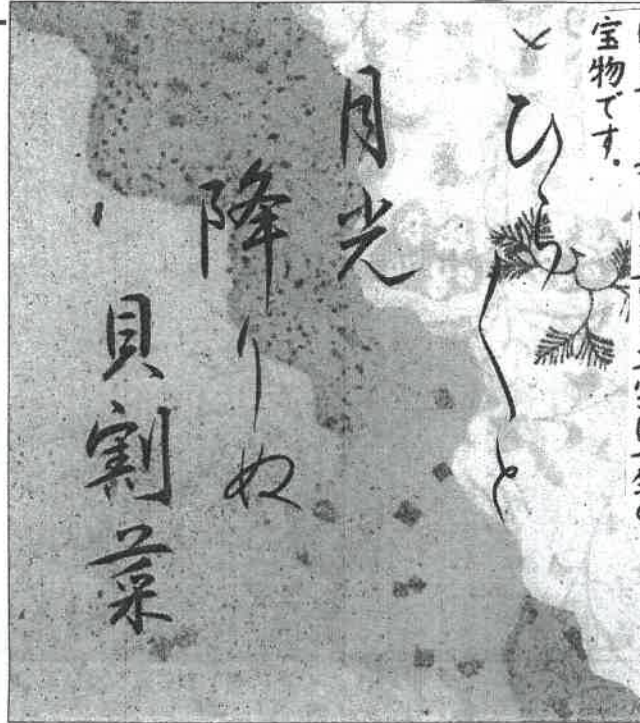 宝物です。
ひら〳〵と
月光
降りぬ
貝割菜